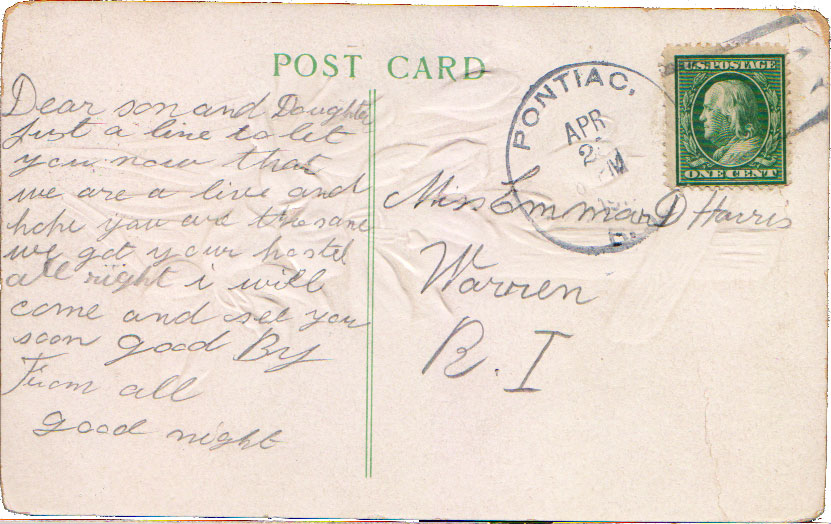 POST CARD
Dear son and Daughter
Just a line to let
you now that
we are a live and
hope you are the same
we got your postel
all right i will
come and see you
soon good By
From all
good night
PONTIAC,
APR
2
PM
R.
U.S. POSTAGE
ONE CENT
Miss Emmar D Harris
Warren
R. I